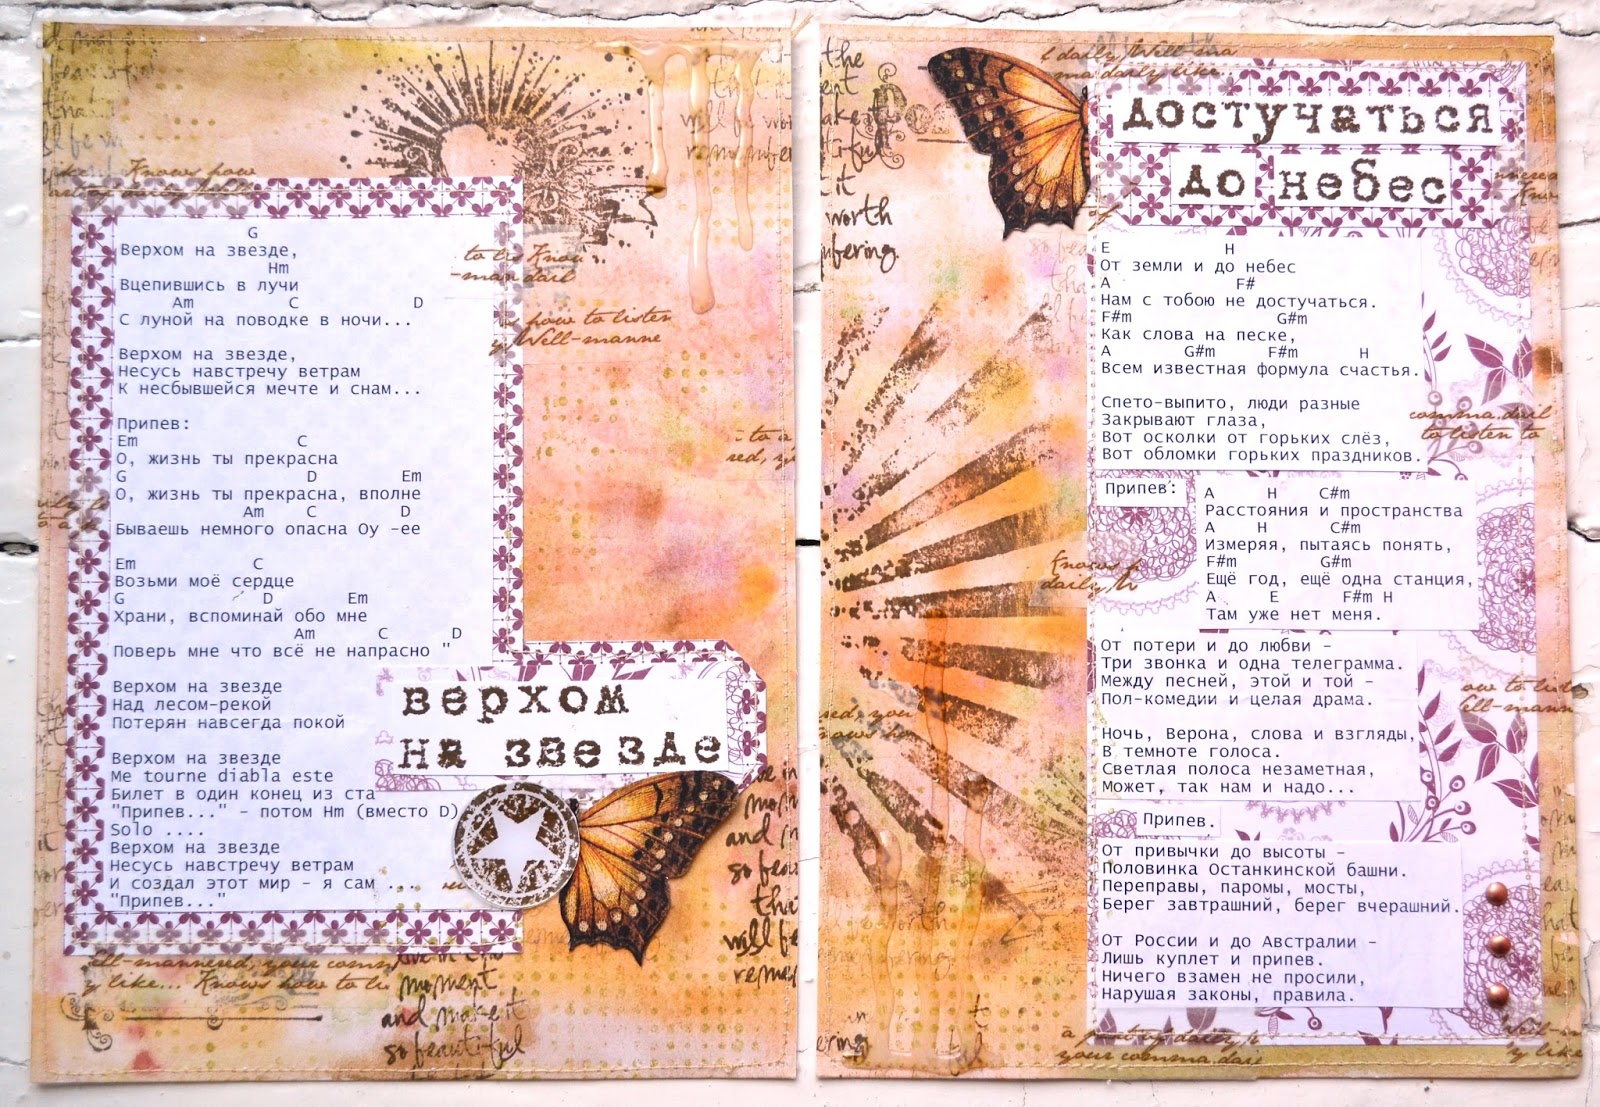 G
Верхом на звезде,
Hm
Вцепившись в лучи
Am C D
С луной на поводке в ночи...
Верхом на звезде,
Несусь навстречу ветрам
К несбывшейся мечте и снам...
Припев:
Em C
О, жизнь ты прекрасна
G D Em
О, жизнь ты прекрасна, вполне
Am C D
Бываешь немного опасна Оу -ее
Em C
Возьми моё сердце
G D Em
Храни, вспоминай обо мне
Am C D
Поверь мне что всё не напрасно "
Верхом на звезде
Над лесом-рекой
Потерян навсегда покой
Верхом на звезде
Me tourne diabla este
Билет в один конец из ста
"Припев..." - потом Hm (вместо D)
Solo ....
Верхом на звезде
Несусь навстречу ветрам
И создал этот мир - я сам ...
"Припев..."
верхом
на звезде
moment
and make it
so beautiful
достучаться
до небес
E H
От земли и до небес
A F#
Нам с тобою не достучаться.
F#m G#m
Как слова на песке,
A G#m F#m H
Всем известная формула счастья.
Спето-выпито, люди разные
Закрывают глаза,
Вот осколки от горьких слёз,
Вот обломки горьких праздников.
Припев:
A H C#m
Расстояния и пространства
A H C#m
Измеряя, пытаясь понять,
F#m G#m
Ещё год, ещё одна станция,
A E F#m H
Там уже нет меня.
От потери и до любви -
Три звонка и одна телеграмма.
Между песней, этой и той -
Пол-комедии и целая драма.
Ночь, Верона, слова и взгляды,
В темноте голоса.
Светлая полоса незаметная,
Может, так нам и надо...
Припев.
От привычки до высоты -
Половинка Останкинской башни.
Переправы, паромы, мосты,
Берег завтрашний, берег вчерашний.
От России и до Австралии -
Лишь куплет и припев.
Ничего взамен не просили,
Нарушая законы, правила.